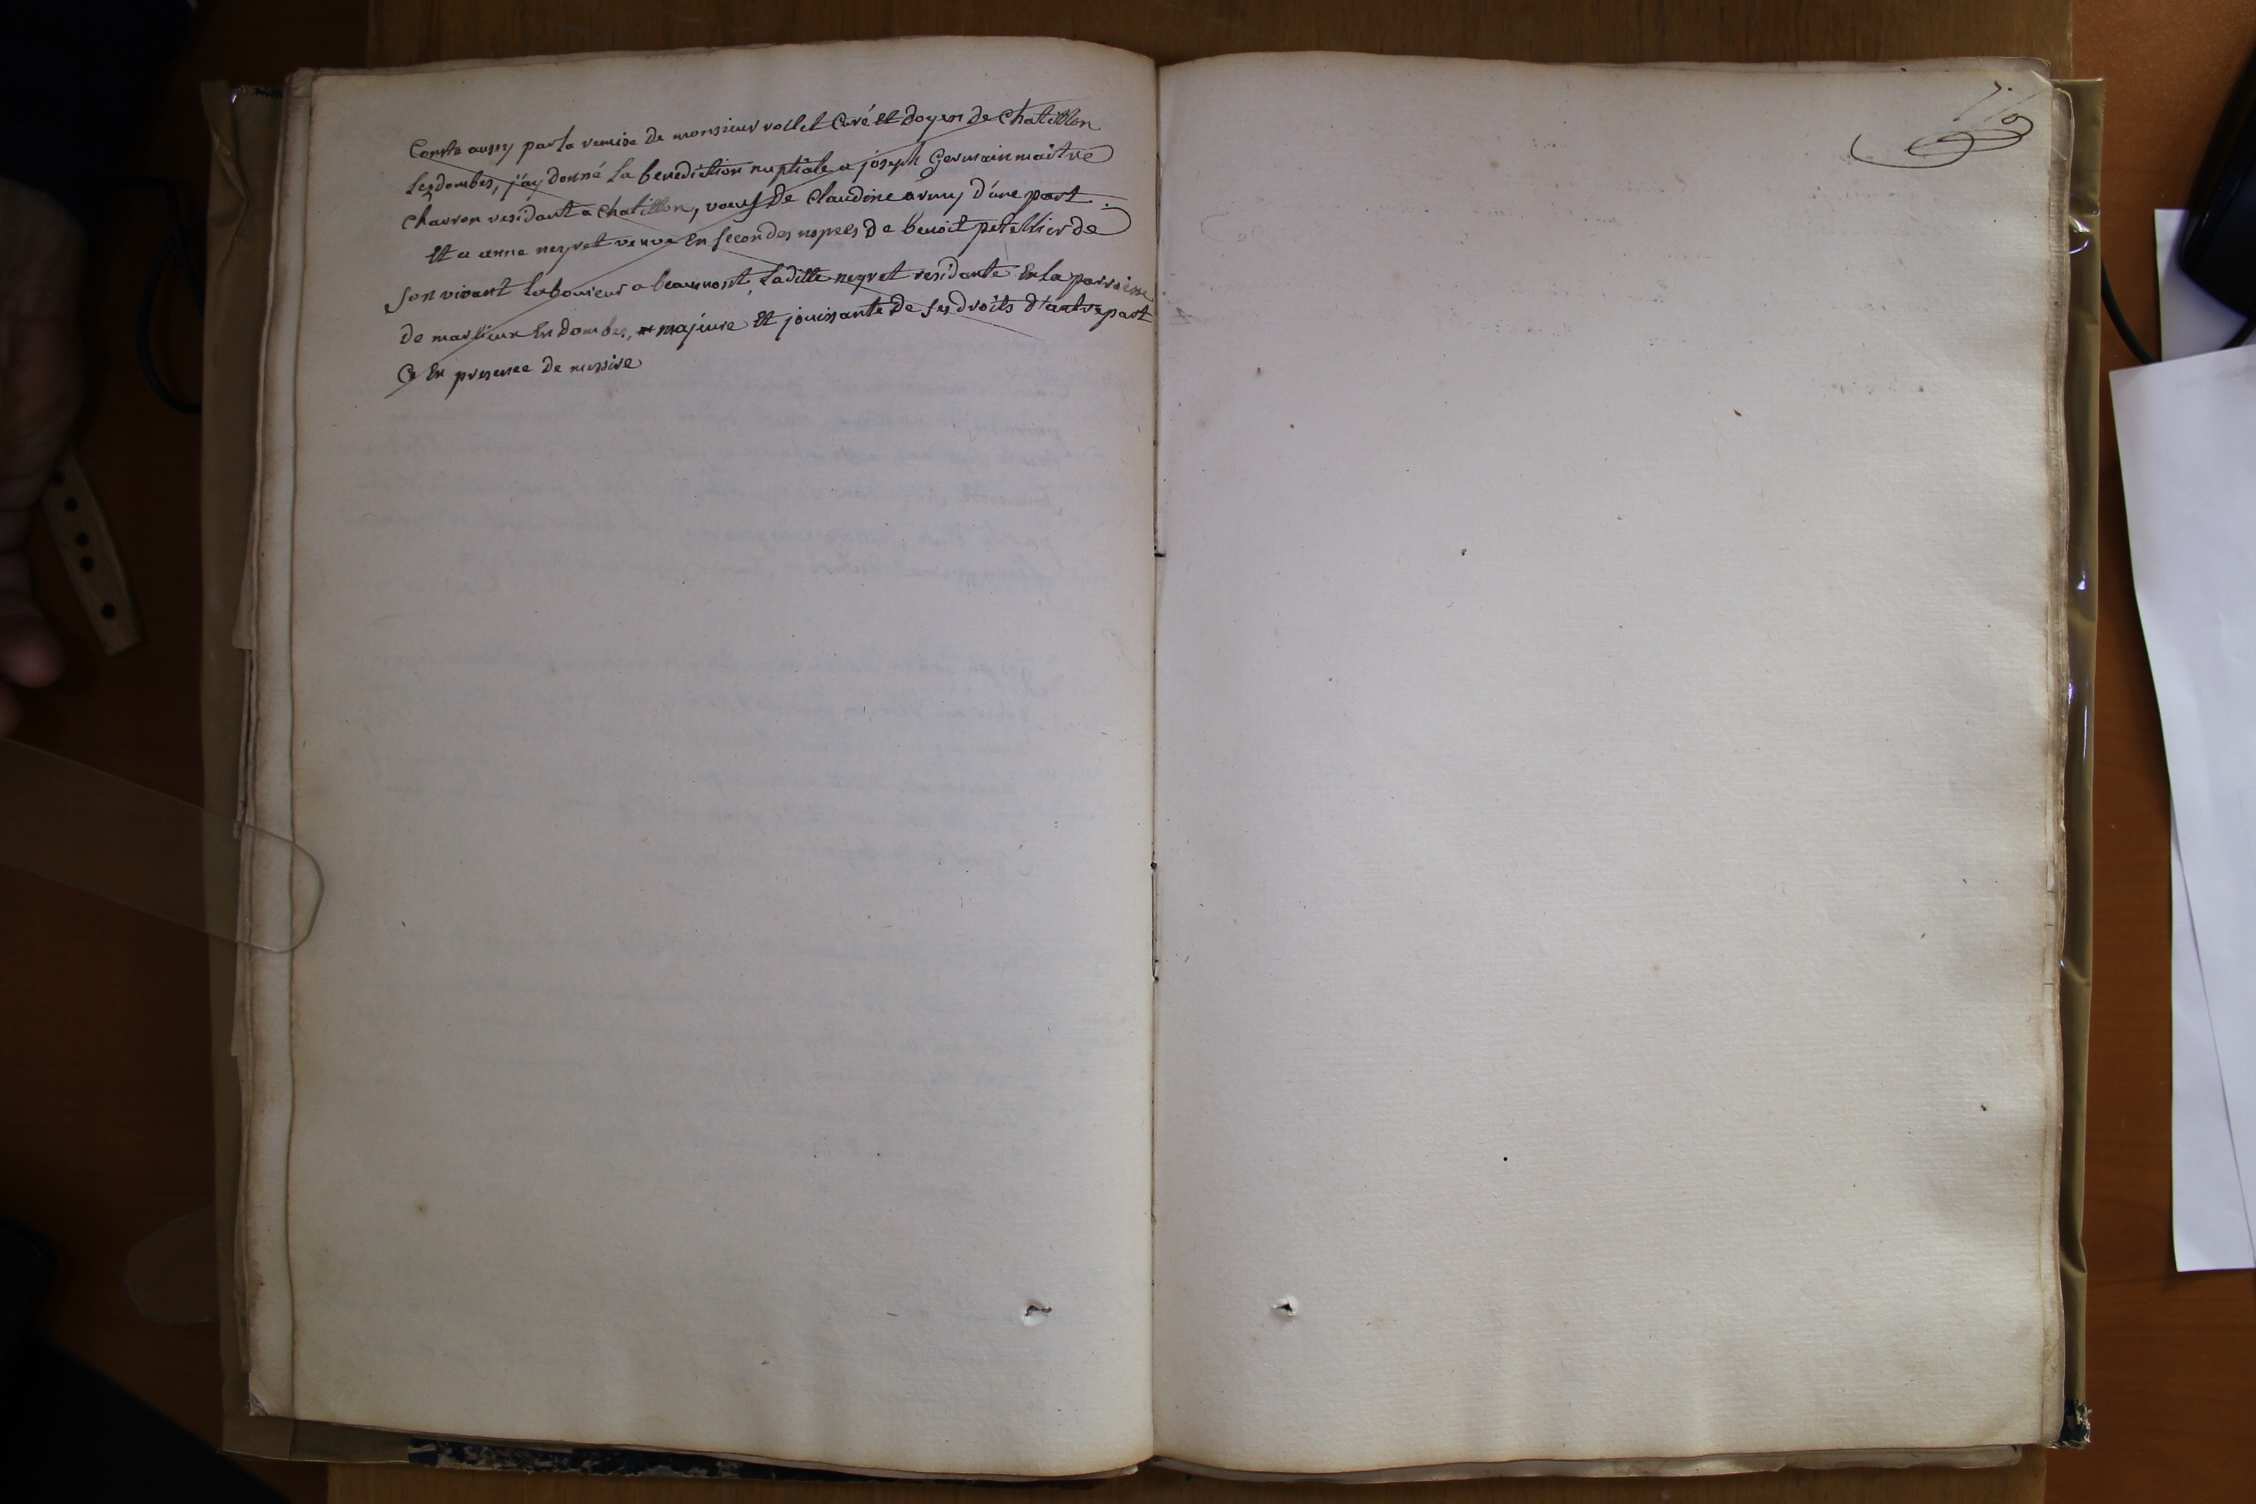 Conste aussy par la remise de monsieur rollet Curé et doyen de Chatillon
les dombes, j'ay donné la benediction nuptiale a joseph Germain maitre
charron residant a Chatillon, veuf de Claudine d'une part
Et a anne neyret veuve En secondes nopces de benoit petellier de
son vivant laboureur a beaumont, laditte neyret residante En la parroisse
de marlieux En dombes, majeure Et jouissante de ses droits d'autre part
Ce En presence de messire